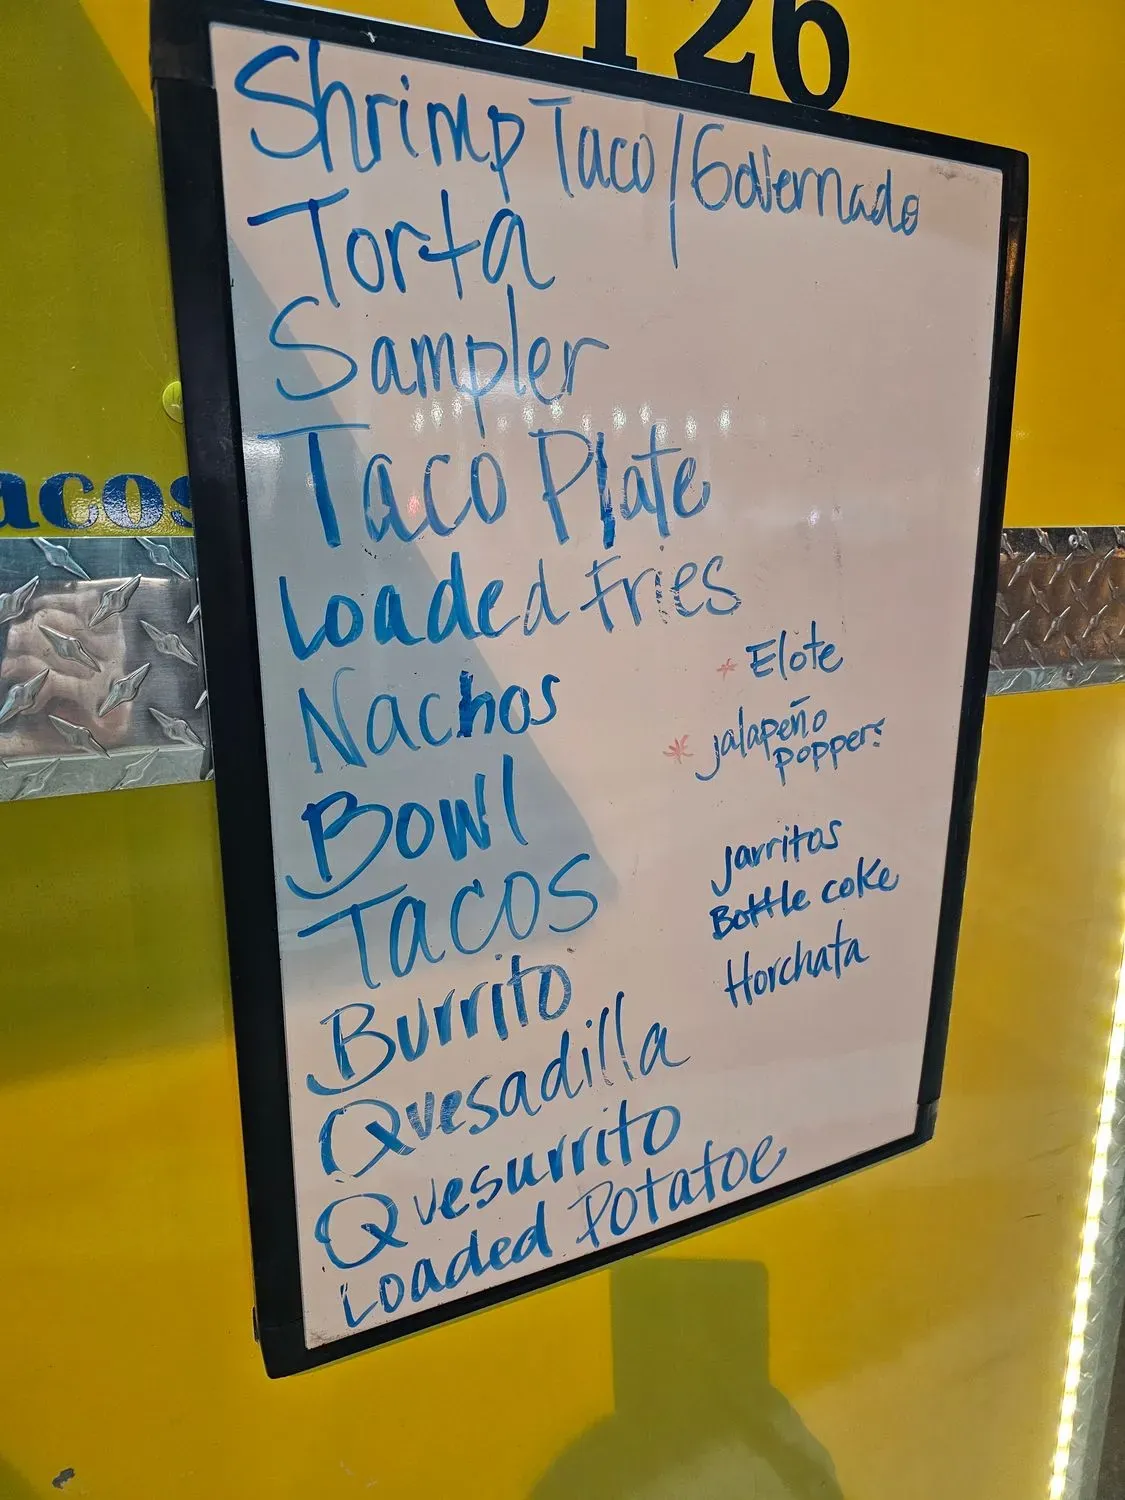 0126
acos
Shrimp Taco/Gobernado
Torta
Sampler
Taco Plate
Loaded Fries
Nachos
Bowl
Tacos
Burrito
Quesadilla
Quesurrito
Loaded Potatoe
* Elote
* jalapeño
poppers
Jarritos
Bottle coke
Horchata